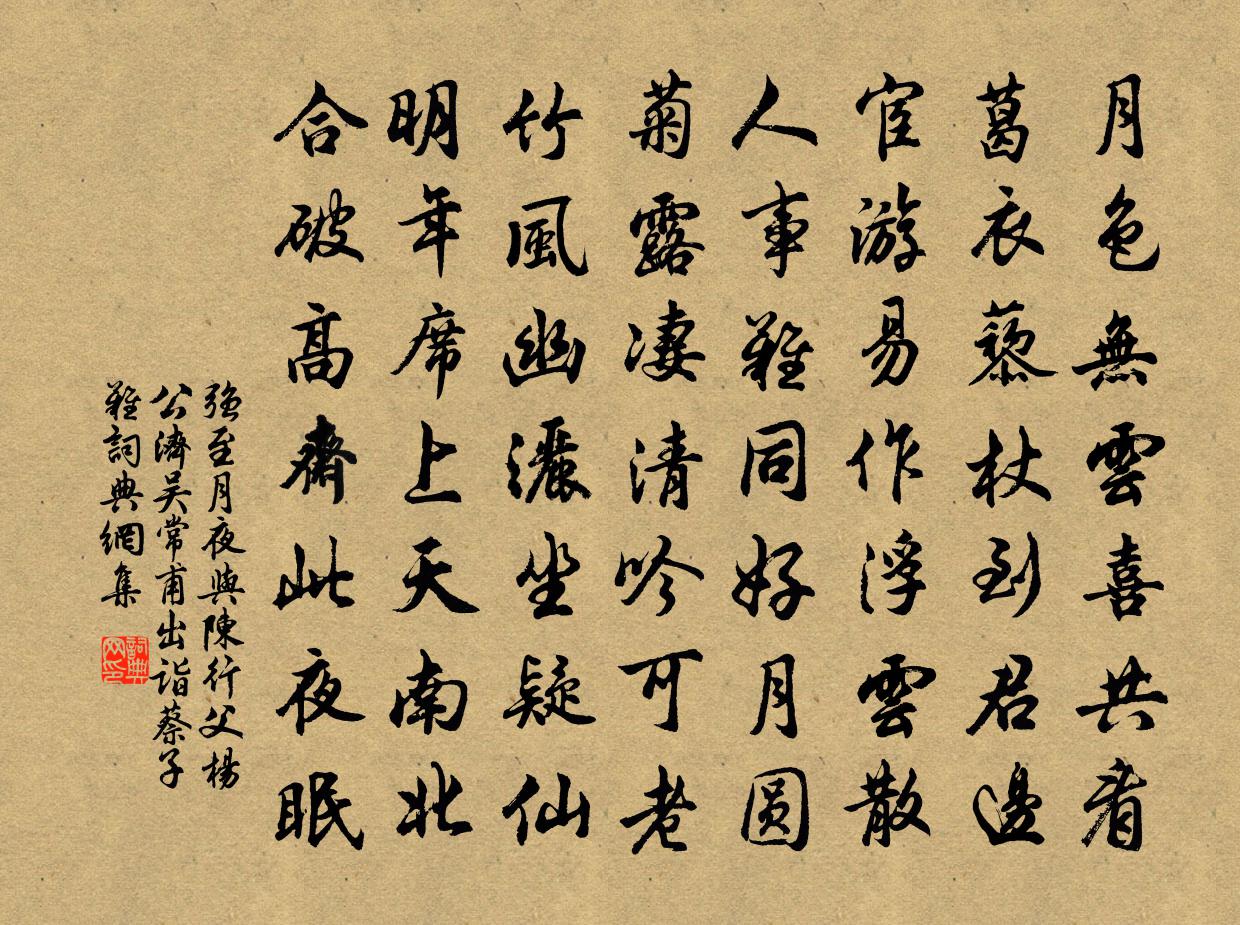 月色無雲喜共看
葛衣藜杖到君邊
宦游易作浮雲散
人事難同好月圓
菊露凄清吟可老
竹風幽灑坐疑仙
明年席上天南北
合破高齋此夜眠
強至月夜與陳行父楊
公濟吳常甫出詣蔡子
難詞典網集
詞典
网印